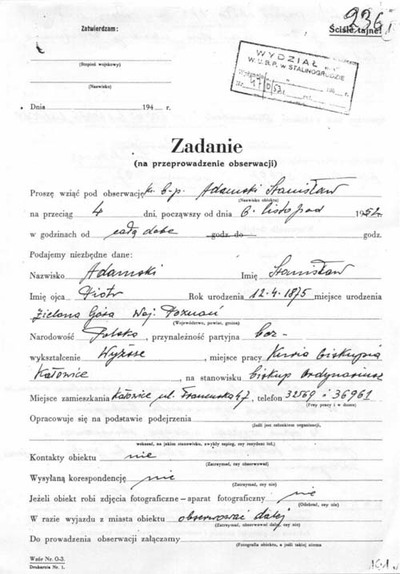 236
Ściśle tajne!
Zatwierdzam:
(Stopień wojskowy)
(Nazwisko)
WYDZIAŁ
W.U.B.P. w STALINOGRODZIE
Dnia 194 r.
Zadanie
(na przeprowadzenie obserwacji)
Proszę wziąć pod obserwację ks. b-p. Adamski Stanisław
(Nazwisko obiektu)
na przeciąg 4 dni, począwszy od dnia 6. listopad 1952
w godzinach od całą dobę godz. do godz.
Podajemy niezbędne dane:
Nazwisko Adamski Imię Stanisław
Imię ojca Piotr Rok urodzenia 12.4.1875 miejsce urodzenia
Zielona Góra Woj. Poznań
(Województwo, powiat, gmina)
Narodowość Polska, przynależność partyjna bez-
wykształcenie Wyższe, miejsce pracy Kuria biskupia
Katowice, na stanowisku biskup ordynariusz
Miejsce zamieszkania Katowice ul. telefon 32569 i 36961
(Foty pracy i w domu)
Opracowuje się na podstawie podejrzenia
(Jeśli jest członkiem organizacji,
wskazać, na jakim stanowisku, zwykły szpieg, czy rezydent itd.)
Kontakty obiektu nie
(Zatrzymać, czy obserwować)
Wysyłaną korespondencję nie
(Zatrzymać, czy nie)
Jeżeli obiekt robi zdjęcia fotograficzne—aparat fotograficzny nie
(Odebrać, czy nie)
W razie wyjazdu z miasta obiektu obserwować dalej
(Zatrzymać, obserwować dalej, czy nie)
Do prowadzenia obserwacji załączamy
(Fotografia obiektu, a jeśli takiej niema
Wzór Nr. G-3.
Drukarnia Nr. 1.